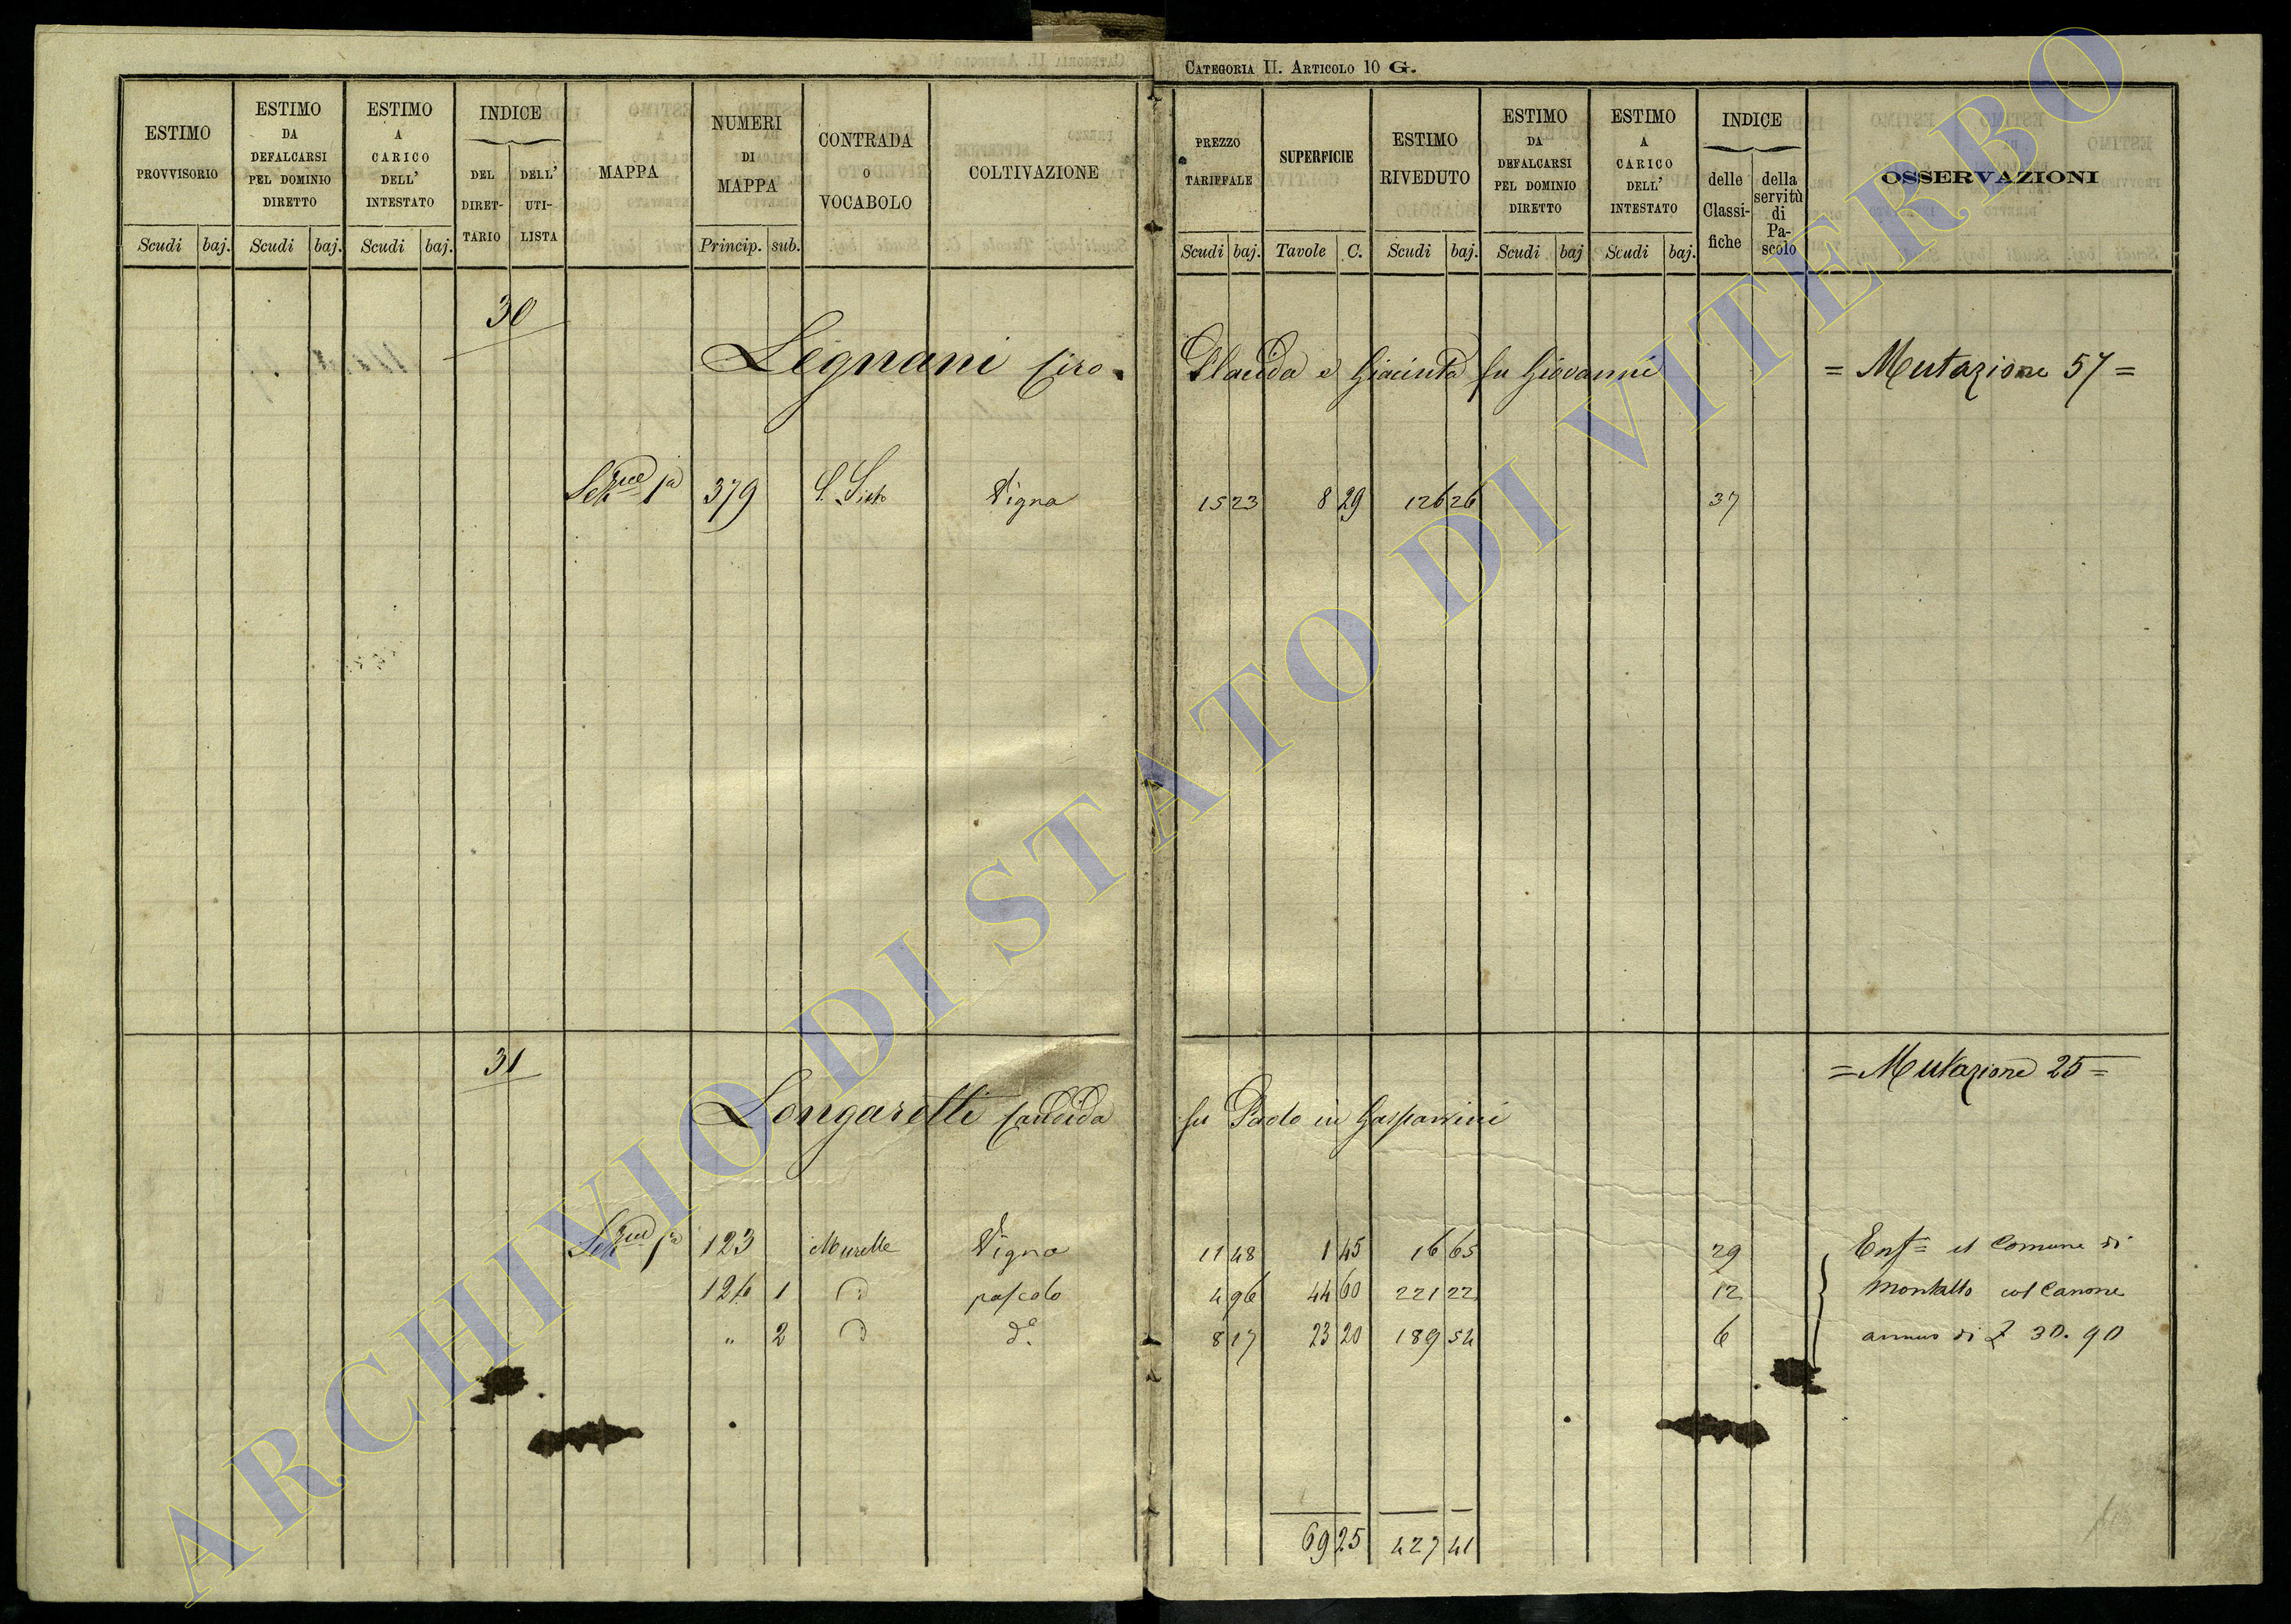 CATEGORIA II. ARTICOLO 10 G.
ESTIMO PROVVISORIO Scudi baj.
ESTIMO DA DEFALCARSI PEL DOMINIO DIRETTO Scudi baj.
ESTIMO A CARICO DELL' INTESTATO Scudi baj.
INDICE DEL DIRETTARIO DELL' UTILISTA
MAPPA
NUMERI DI MAPPA Princip. sub.
CONTRADA O VOCABOLO
COLTIVAZIONE
PREZZO TARIFFALE Scudi baj.
SUPERFICIE Tavole C.
ESTIMO RIVEDUTO Scudi baj.
ESTIMO DA DEFALCARSI PEL DOMINIO DIRETTO Scudi baj
ESTIMO A CARICO DELL' INTESTATO Scudi baj.
INDICE delle Classifiche della servitù di Pascolo
OSSERVAZIONI
30
Legnani Ciro. Placida e Giacinta fu Giovanni = Mutazione 57 =
Sezne 1a 379 S. Sisto Vigna 15 23 8 29 126 26 37
31
= Mutazione 25 =
Longarelli Candida fu Paolo in Gasparrini
Sezne 1a 123 Murelle Vigna 11 48 1 45 16 65 29 Enfta al Comune di
124 1 D pascolo 4 96 44 60 221 22 12 Montalto col Canone
" 2 D do. 8 17 23 20 189 54 6 annuo di 30.90
69 25 427 41
ARCHIVIO DI STATO DI VITERBO